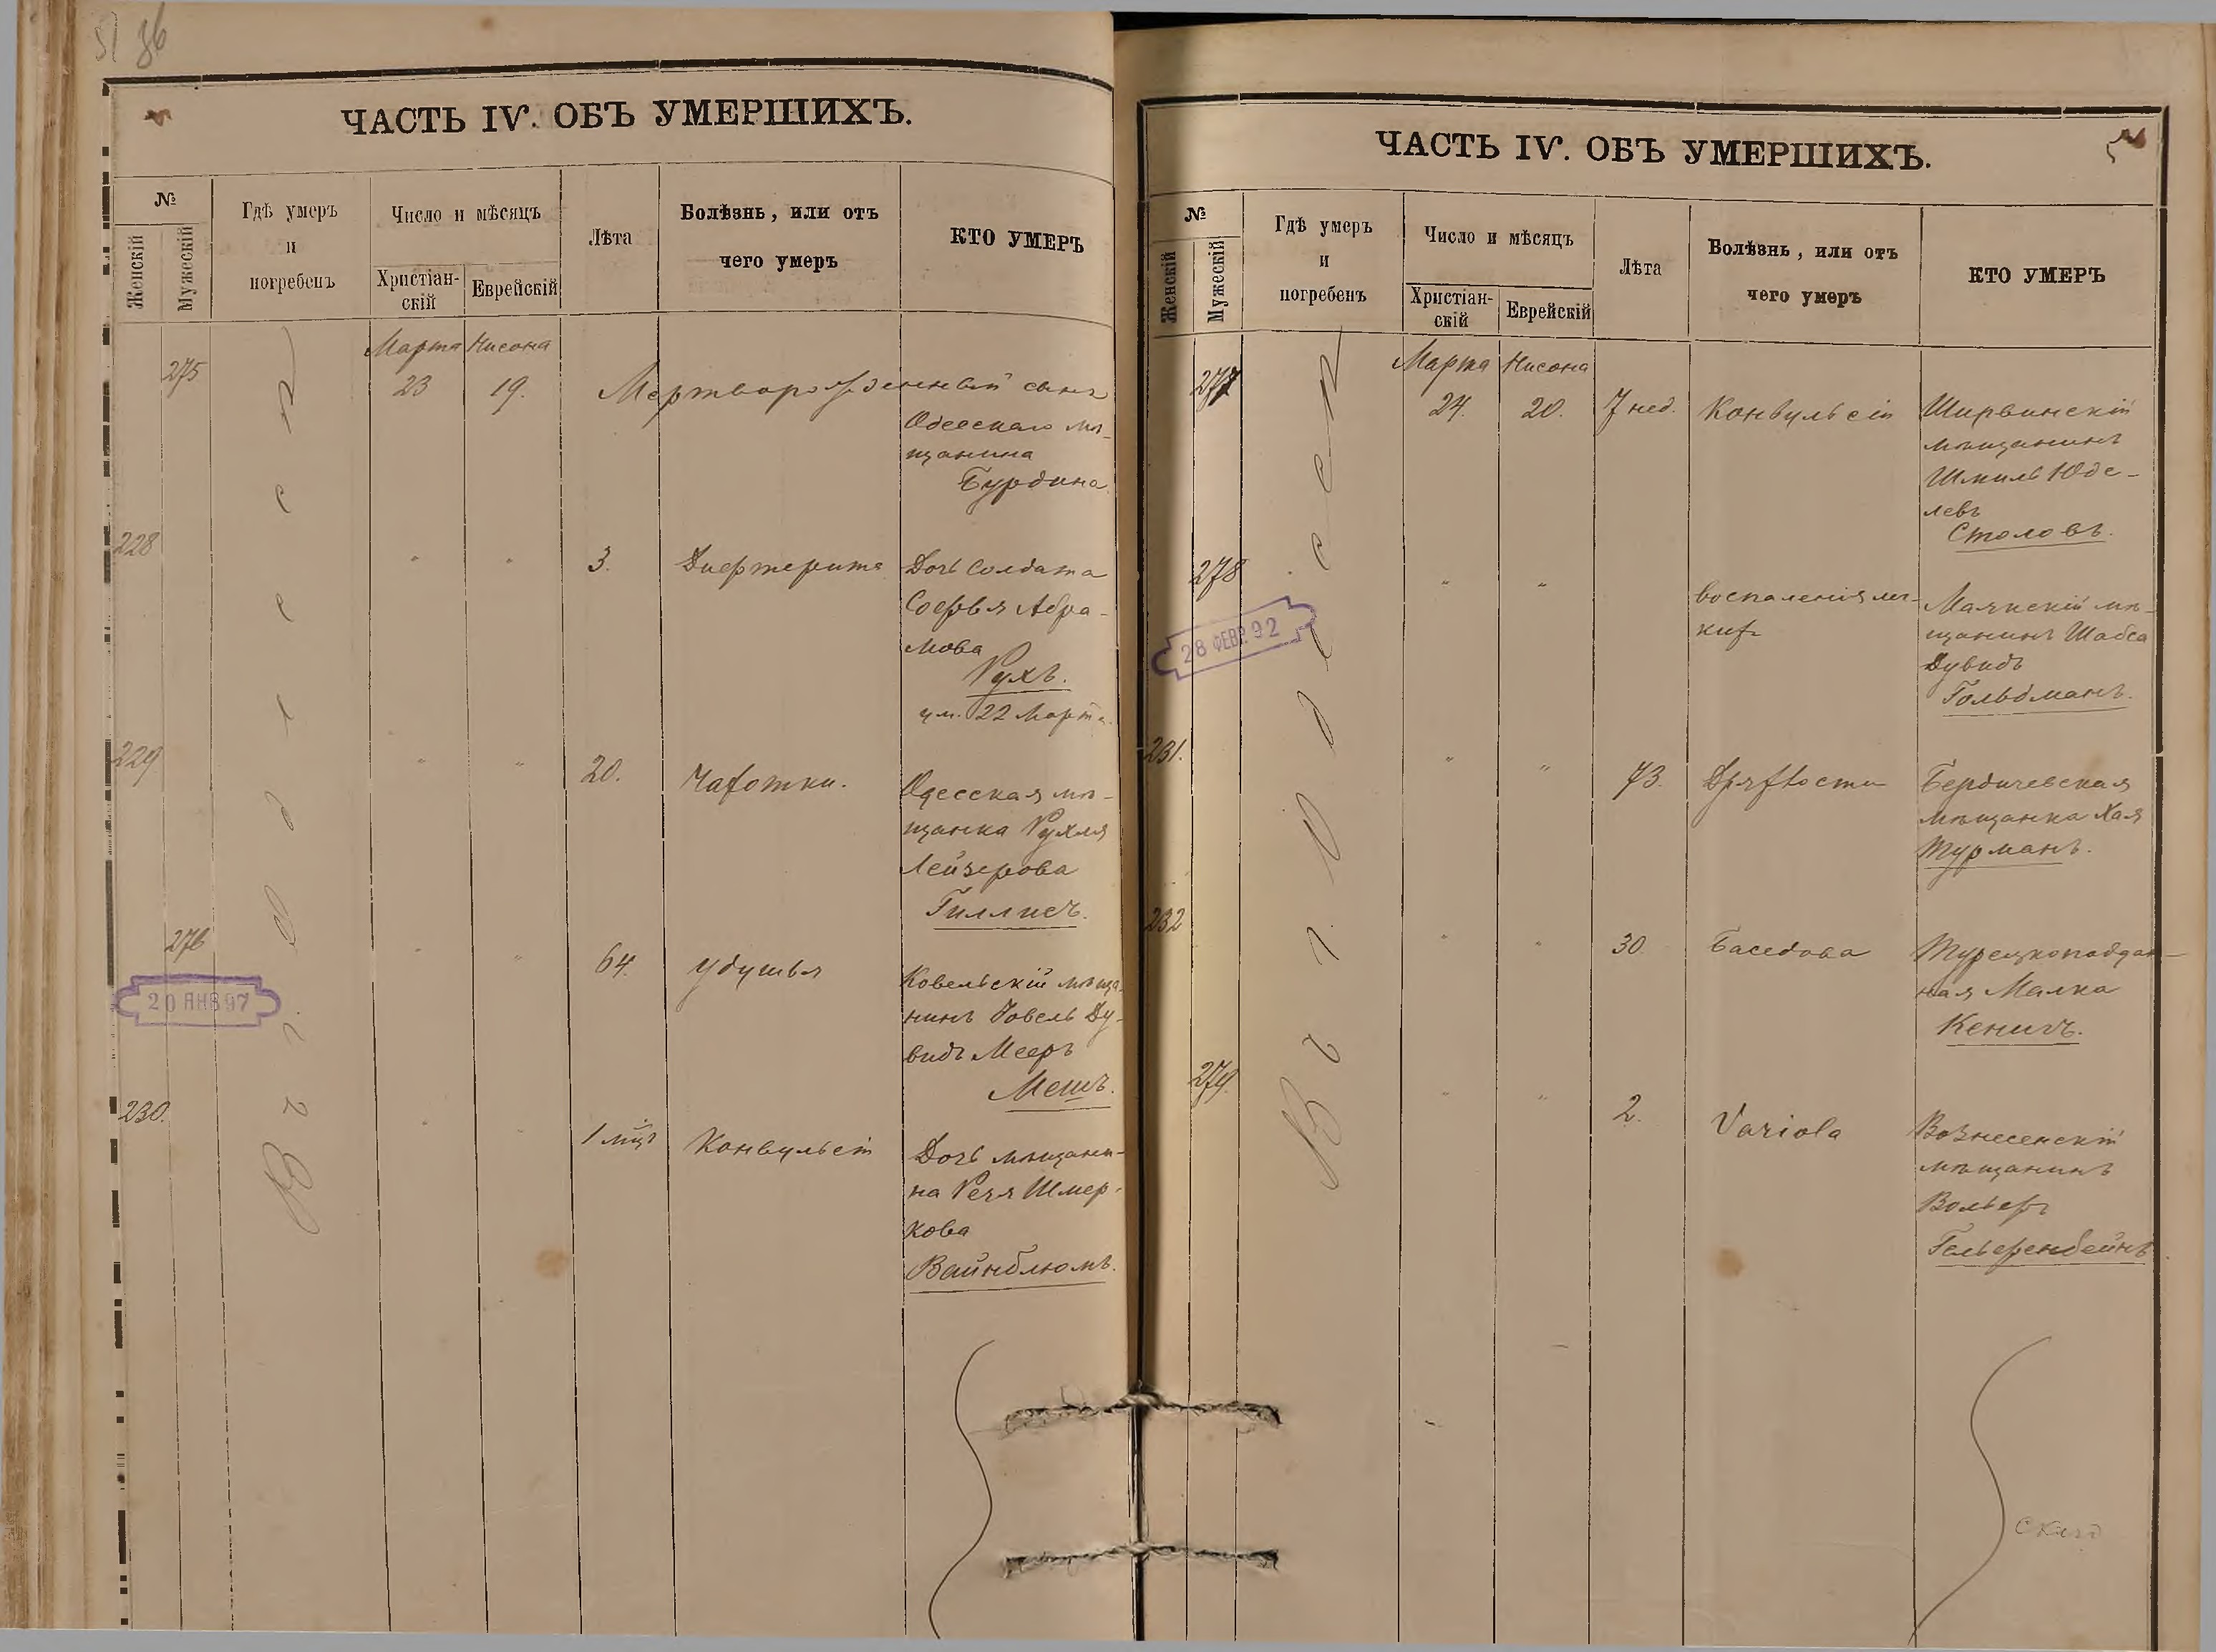 86
ЧАСТЬ IV. ОБЪ УМЕРШИХЪ.
№
Женскій
Мужескій
Гдѣ умеръ
и
погребенъ
Число и мѣсяцъ
Христіан-
скій
Еврейскій
Лѣта
Болѣзнь, или отъ
чего умеръ
КТО УМЕРЪ
Въ Одессѣ
Марта Нисона
275 23 19. Мертворожденный сынъ
Одесскаго мѣ-
щанина
Бурдина
228 " " 3. Дифтерита Дочь солдата
Софья Абра-
мова
Рухъ.
ум. 22 Марта
229 " " 20. Чахотки. Одесская мѣ-
щанка Рухля
Лейзерова
Гиллисъ.
276 " " 64. Удушья Ковельскій мѣща-
нинъ Іовель Ду-
видъ Мееръ
Мешъ.
20 ЯНВ 97
230. " " 1 мцъ Конвульсіи Дочь мѣщани-
на Рейя Шмер-
кова
Вайнблюмъ.
ЧАСТЬ IV. ОБЪ УМЕРШИХЪ.
№
Женскій
Мужескій
Гдѣ умеръ
и
погребенъ
Число и мѣсяцъ
Христіан-
скій
Еврейскій
Лѣта
Болѣзнь, или отъ
чего умеръ
КТО УМЕРЪ
Въ Одессѣ
Марта Нисона
277 24. 20. 7 нед. Конвульсіи Ширвинскій
мѣщанинъ
Шмиль Юде-
левъ
Столовъ.
278 " " воспаленія лег-
кихъ Маякскій мѣ-
щанинъ Шабса
Дувидъ
Гольдманъ.
28 ФЕВР. 92
231. " " 73. Дряхлости Бердичевская
мѣщанка Хая
Турманъ.
232 " " 30 Баседова Турецкоподдан-
ная Малка
Кенигъ.
279. " " 2. Variola Вознесенскій
мѣщанинъ
Вольфъ
Гельфенбейнъ.